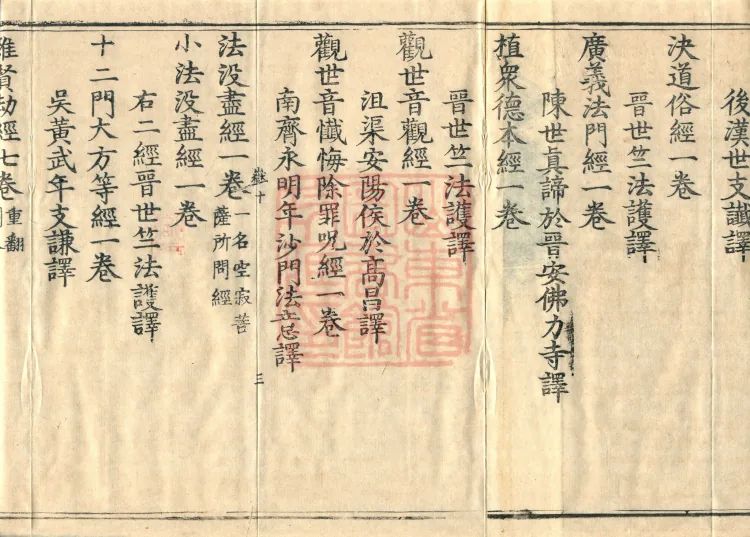 後漢世支讖譯
決道俗經一卷
晉世竺法護譯
廣義法門經一卷
陳世真諦於晉安佛力寺譯
植衆德本經一卷
晉世竺法護譯
觀世音觀經一卷
沮渠安陽侯於高昌譯
觀世音懺悔除罪呪經一卷
南齊永明年沙門法意譯
三
法没盡經一卷 一名空寂菩薩所問經
小法没盡經一卷
右二經晉世竺法護譯
十二門大方等經一卷
吳黃武年支謙譯
賢劫經七卷 重翻